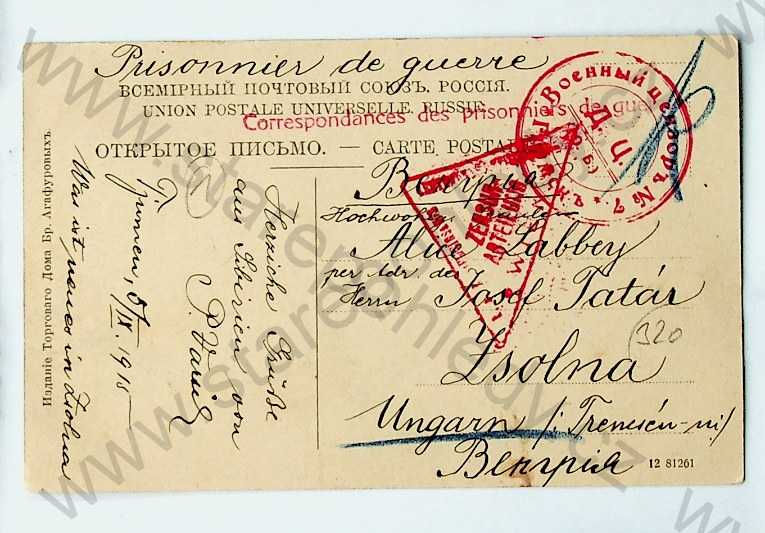 Prisonnier de guerre
ВСЕМІРНЫЙ ПОЧТОВЫЙ СОЮЗЪ. РОССІЯ.
UNION POSTALE UNIVERSELLE. RUSSIE.
Correspondances des prisonniers de guerre
ОТКРЫТОЕ ПИСЬМО. — CARTE POSTALE
Военный цензоръ № 7
Д. Ц.
ZENSUR
Венгрія
Hochwohlgeb.
Alice Labbey
per Adr. des
Herrn Josef Tatár
Zsolna
320
Ungarn (: Trencsén-m:)
Венгрія
12 81261
Herzliche Grüße
aus Sibirien von
Tjumen, 5/IX. 1915
Was ist neues in Zsolna
Изданіе Торговаго Дома Бр. Агафуровыхъ.
www.starepohledy.cz